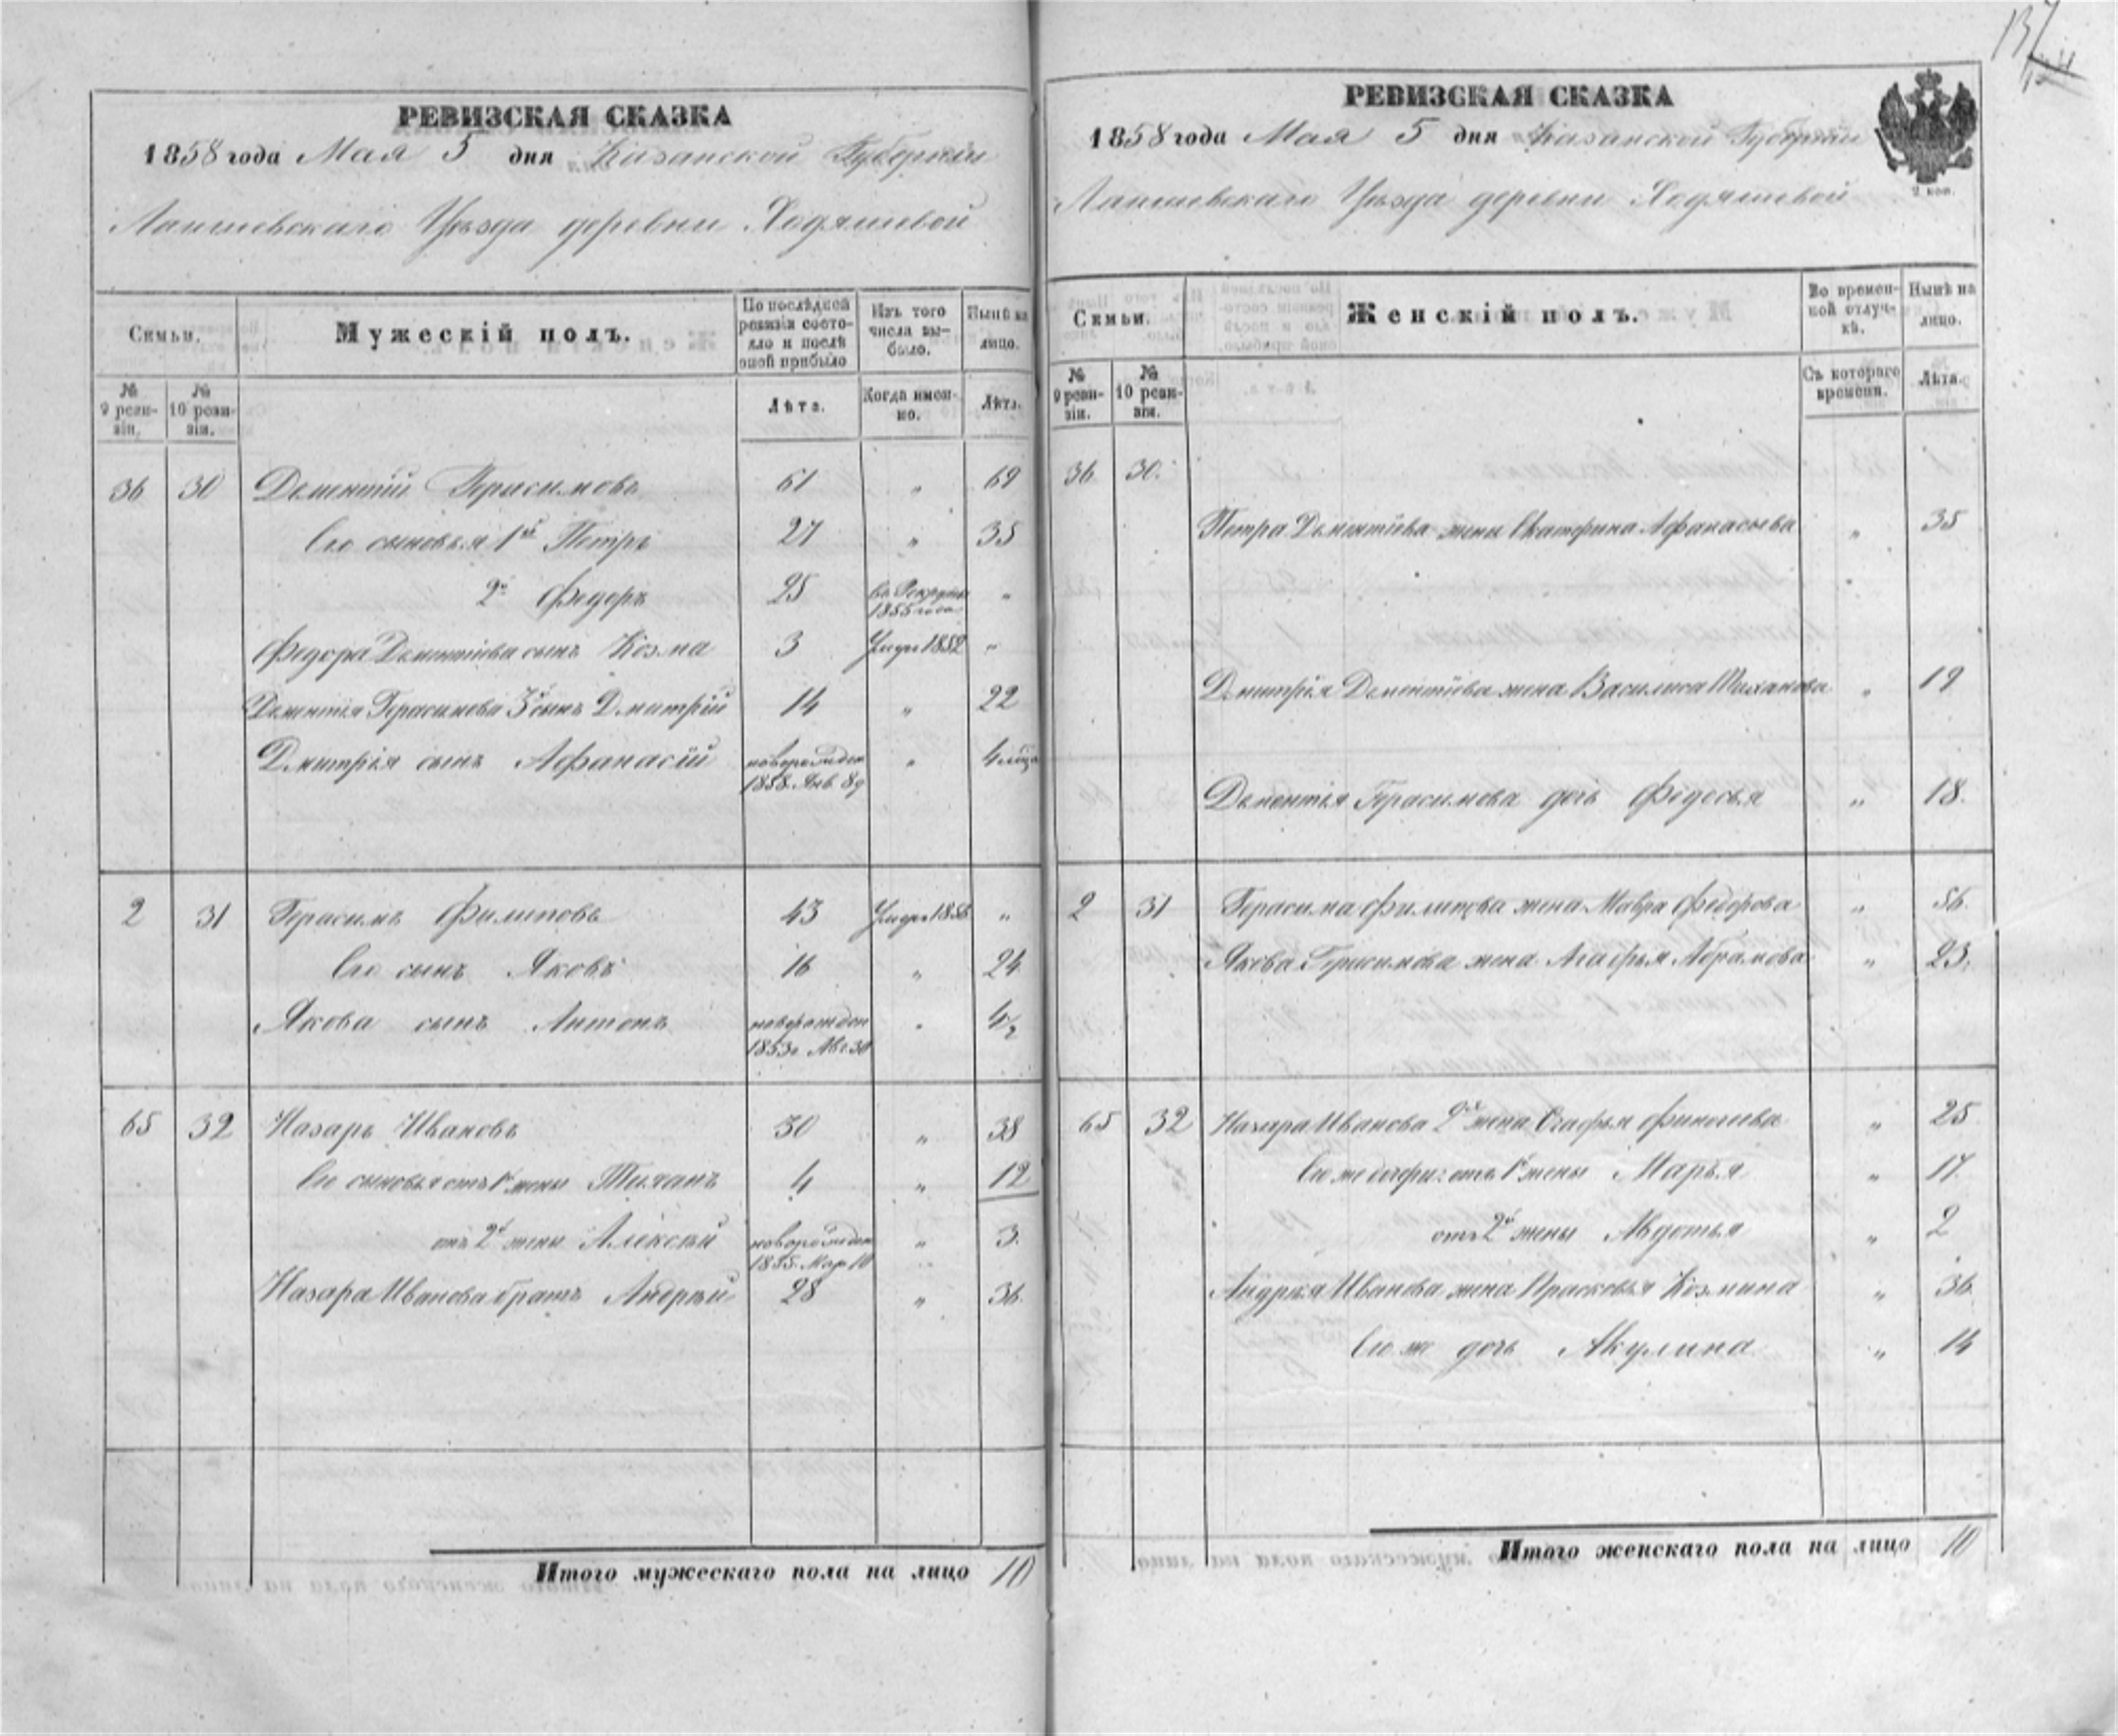 137
РЕВИЗСКАЯ СКАЗКА
1858 года Мая 5 дня Казанской Губерніи
Лаишевскаго Уѣзда деревни Ходяшевой
Семьи.
Мужескій полъ.
По послѣдней ревизіи состо-
яло и послѣ
оной прибыло
Изъ того
числа вы-
было.
Нынѣ на
лицо.
№
9 реви-
зіи.
№
10 реви-
зіи.
Лѣта.
Когда имен-
но.
Лѣта.
36 30 Дементій Герасимовъ 61 „ 69
Его сыновья 1й Петръ 27 „ 35
2й Федоръ 25 въ Рекруты 1855 года „
Федора Дементіева сынъ Козма 3 Умеръ 1852 „
Дементія Герасимова 3й сынъ Дмитрій 14 „ 22
Дмитрія сынъ Афанасій новорожден 1858 Янв. 8 д „ 4 мѣца
2 31 Герасимъ Филиповъ 43 Умеръ 1856 „
Его сынъ Яковъ 16 „ 24
Якова сынъ Антонъ новорожден 1853 Авг. 30 „ 4/2
65 32 Назаръ Ивановъ 30 „ 38
Его сыновья отъ 1й жены Тиханъ 4 „ 12
отъ 2й жены Алексѣй новорожден 1855 Мар 10 „ 3.
Назара Иванова братъ Андрѣй 28 „ 36.
Итого мужескаго пола на лицо 10
РЕВИЗСКАЯ СКАЗКА
1858 года Мая 5 дня Казанской Губерніи
Лаишевскаго Уѣзда деревни Ходяшевой
2 коп.
Семьи.
Женскій полъ.
Во времен-
ной отлуч-
кѣ.
Нынѣ на
лицо.
№
9 реви-
зіи.
№
10 реви-
зіи.
Съ котораго
времени.
Лѣта.
36 30.
Петра Дементіева жена Екатерина Афанасьева „ 35
Дмитрія Дементіева жена Василиса Тиханова „ 19
Дементія Герасимова дочь Федосья „ 18.
2 31 Герасима Филипова жена Мавра Федорова „ 56.
Якова Герасимова жена Агафья Абрамова „ 23.
65 32 Назара Иванова 2я жена Агафья Финогеева „ 25
Его же дочери: отъ 1й жены Марья „ 17.
отъ 2й жены Авдотья „ 2
Андрея Иванова жена Прасковья Козмина „ 36
Его же дочь Акулина „ 14
Итого женскаго пола на лицо 10